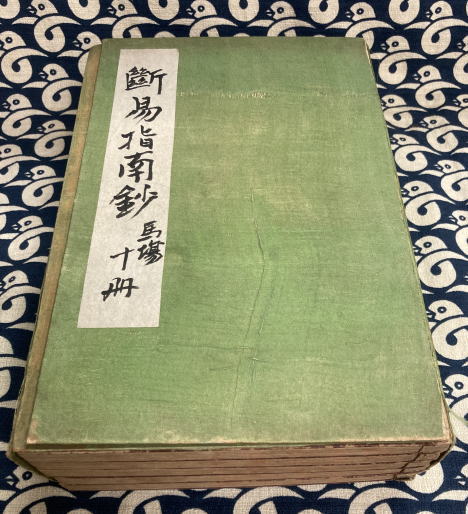 斷易指南鈔
馬場
十冊